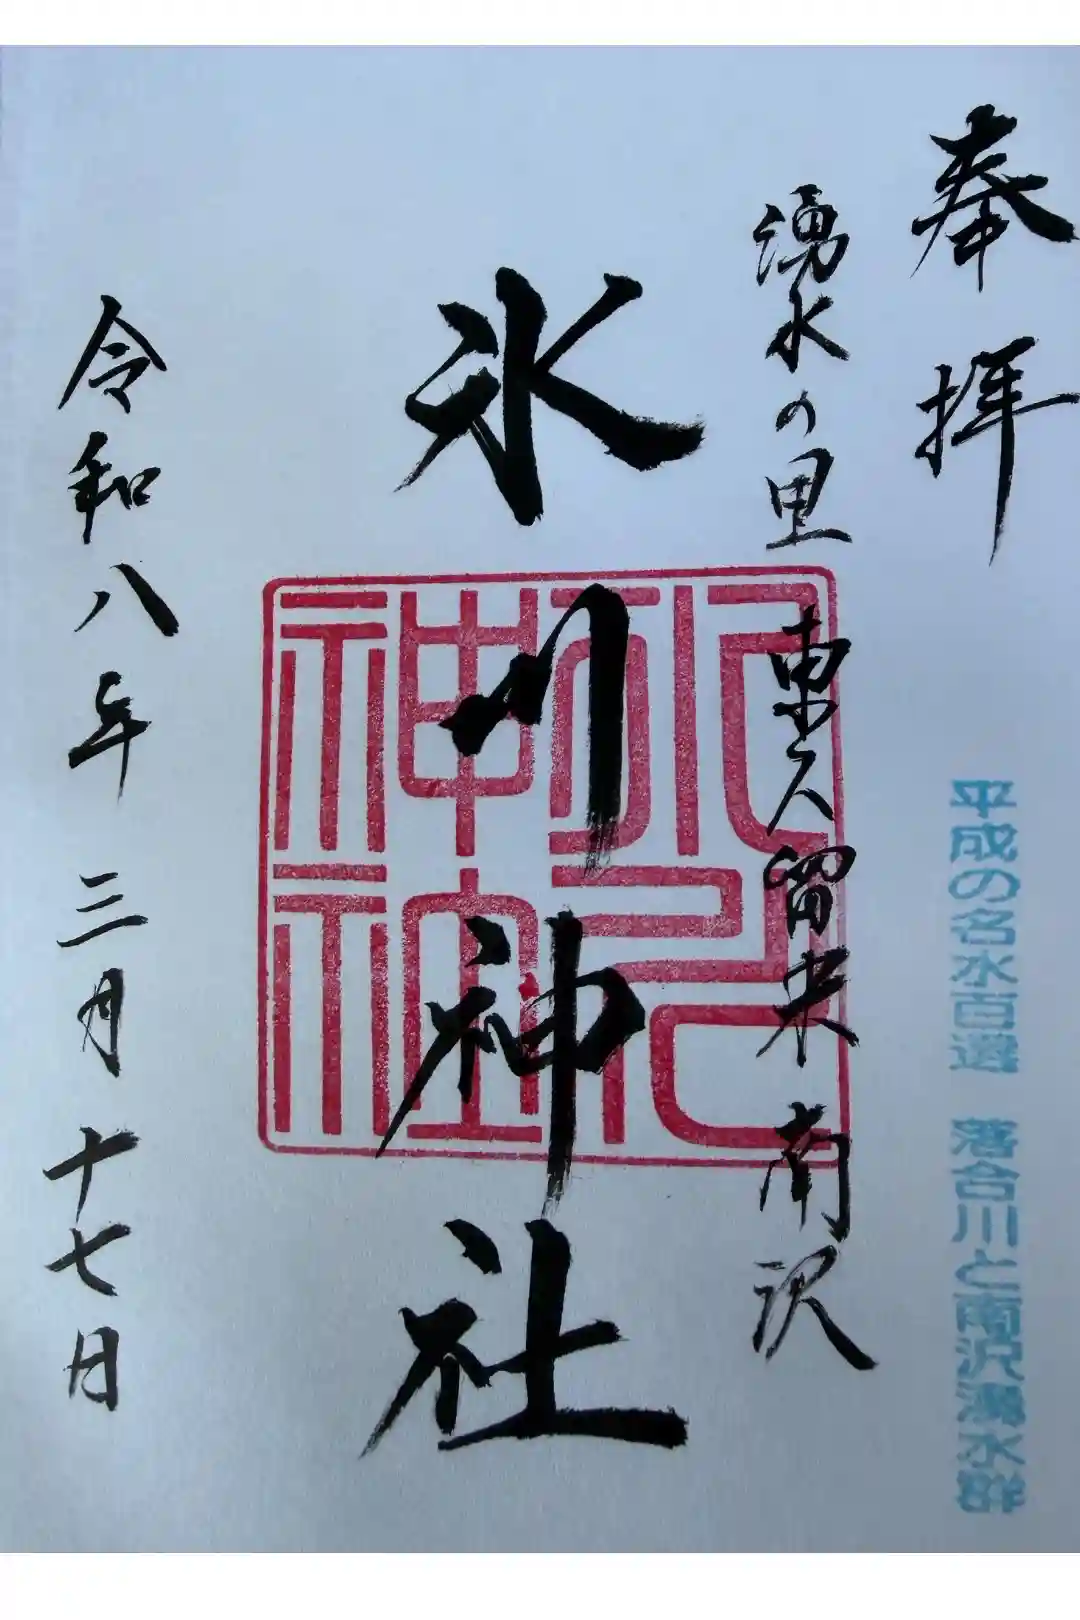 奉拝
平成の名水百選 落合川と南沢湧水群
湧水の里 東久留米 南沢
氷川神社
氷川
神社
令和八年 三月 十七日